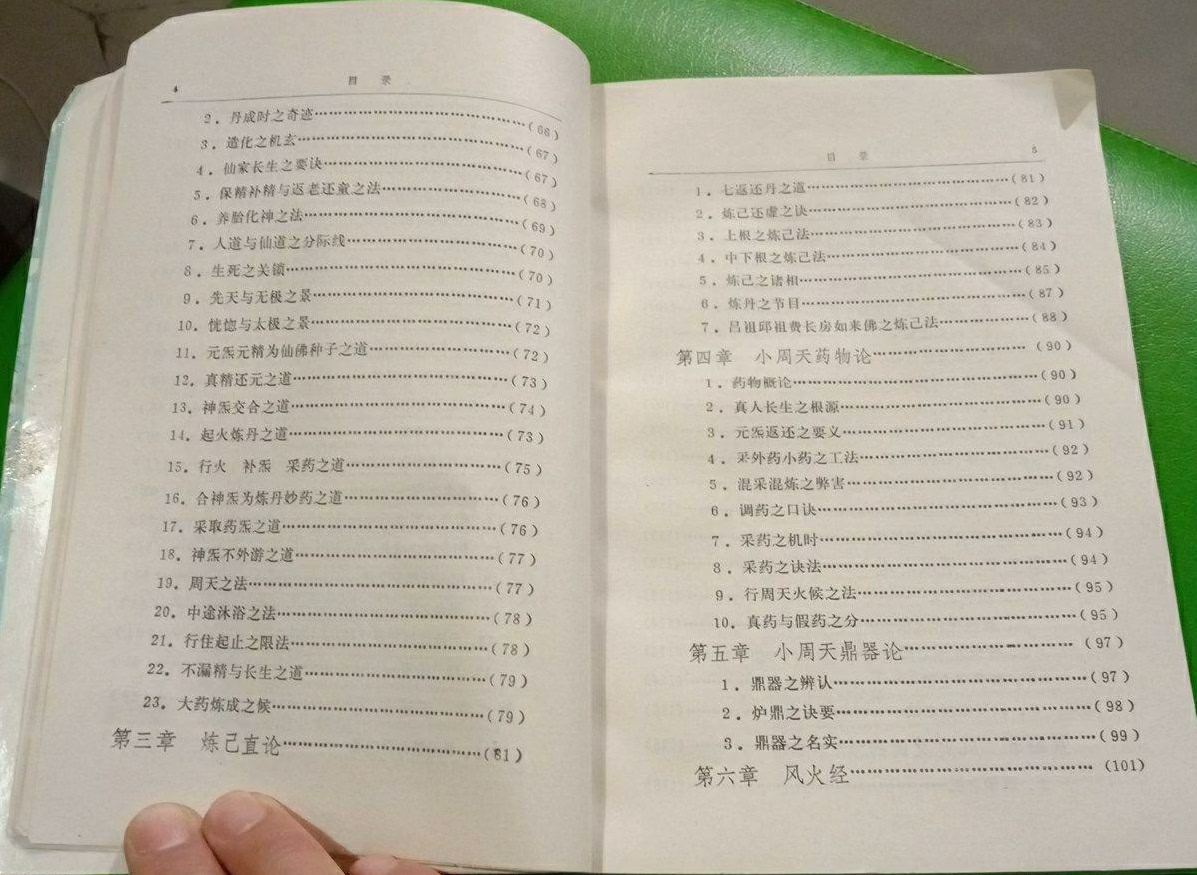 4 目 录
2．丹成时之奇迹……(66)
3．造化之机玄……(67)
4．仙家长生之要诀……(67)
5．保精补精与返老还童之法……(68)
6．养胎化神之法……(69)
7．人道与仙道之分际线……(70)
8．生死之关锁……(70)
9．先天与无极之景……(71)
10．恍惚与太极之景……(72)
11．元炁元精为仙佛种子之道……(72)
12．真精还元之道……(73)
13．神炁交合之道……(74)
14．起火炼丹之道……(73)
15．行火 补炁 采药之道……(75)
16．合神炁为炼丹妙药之道……(76)
17．采取药炁之道……(76)
18．神炁不外游之道……(77)
19．周天之法……(77)
20．中途沐浴之法……(78)
21．行住起止之限法……(78)
22．不漏精与长生之道……(79)
23．大药炼成之候……(79)
第三章 炼己直论……(81)
目 录 5
1．七返还丹之道……(81)
2．炼己还虚之诀……(82)
3．上根之炼己法……(83)
4．中下根之炼己法……(84)
5．炼己之诸相……(85)
6．炼丹之节目……(87)
7．吕祖邱祖费长房如来佛之炼己法……(88)
第四章 小周天药物论……(90)
1．药物概论……(90)
2．真人长生之根源……(90)
3．元炁返还之要义……(91)
4．采外药小药之工法……(92)
5．混采混炼之弊害……(92)
6．调药之口诀……(93)
7．采药之机时……(94)
8．采药之诀法……(94)
9．行周天火候之法……(95)
10．真药与假药之分……(95)
第五章 小周天鼎器论……(97)
1．鼎器之辨认……(97)
2．炉鼎之诀要……(98)
3．鼎器之名实……(99)
第六章 风火经……(101)